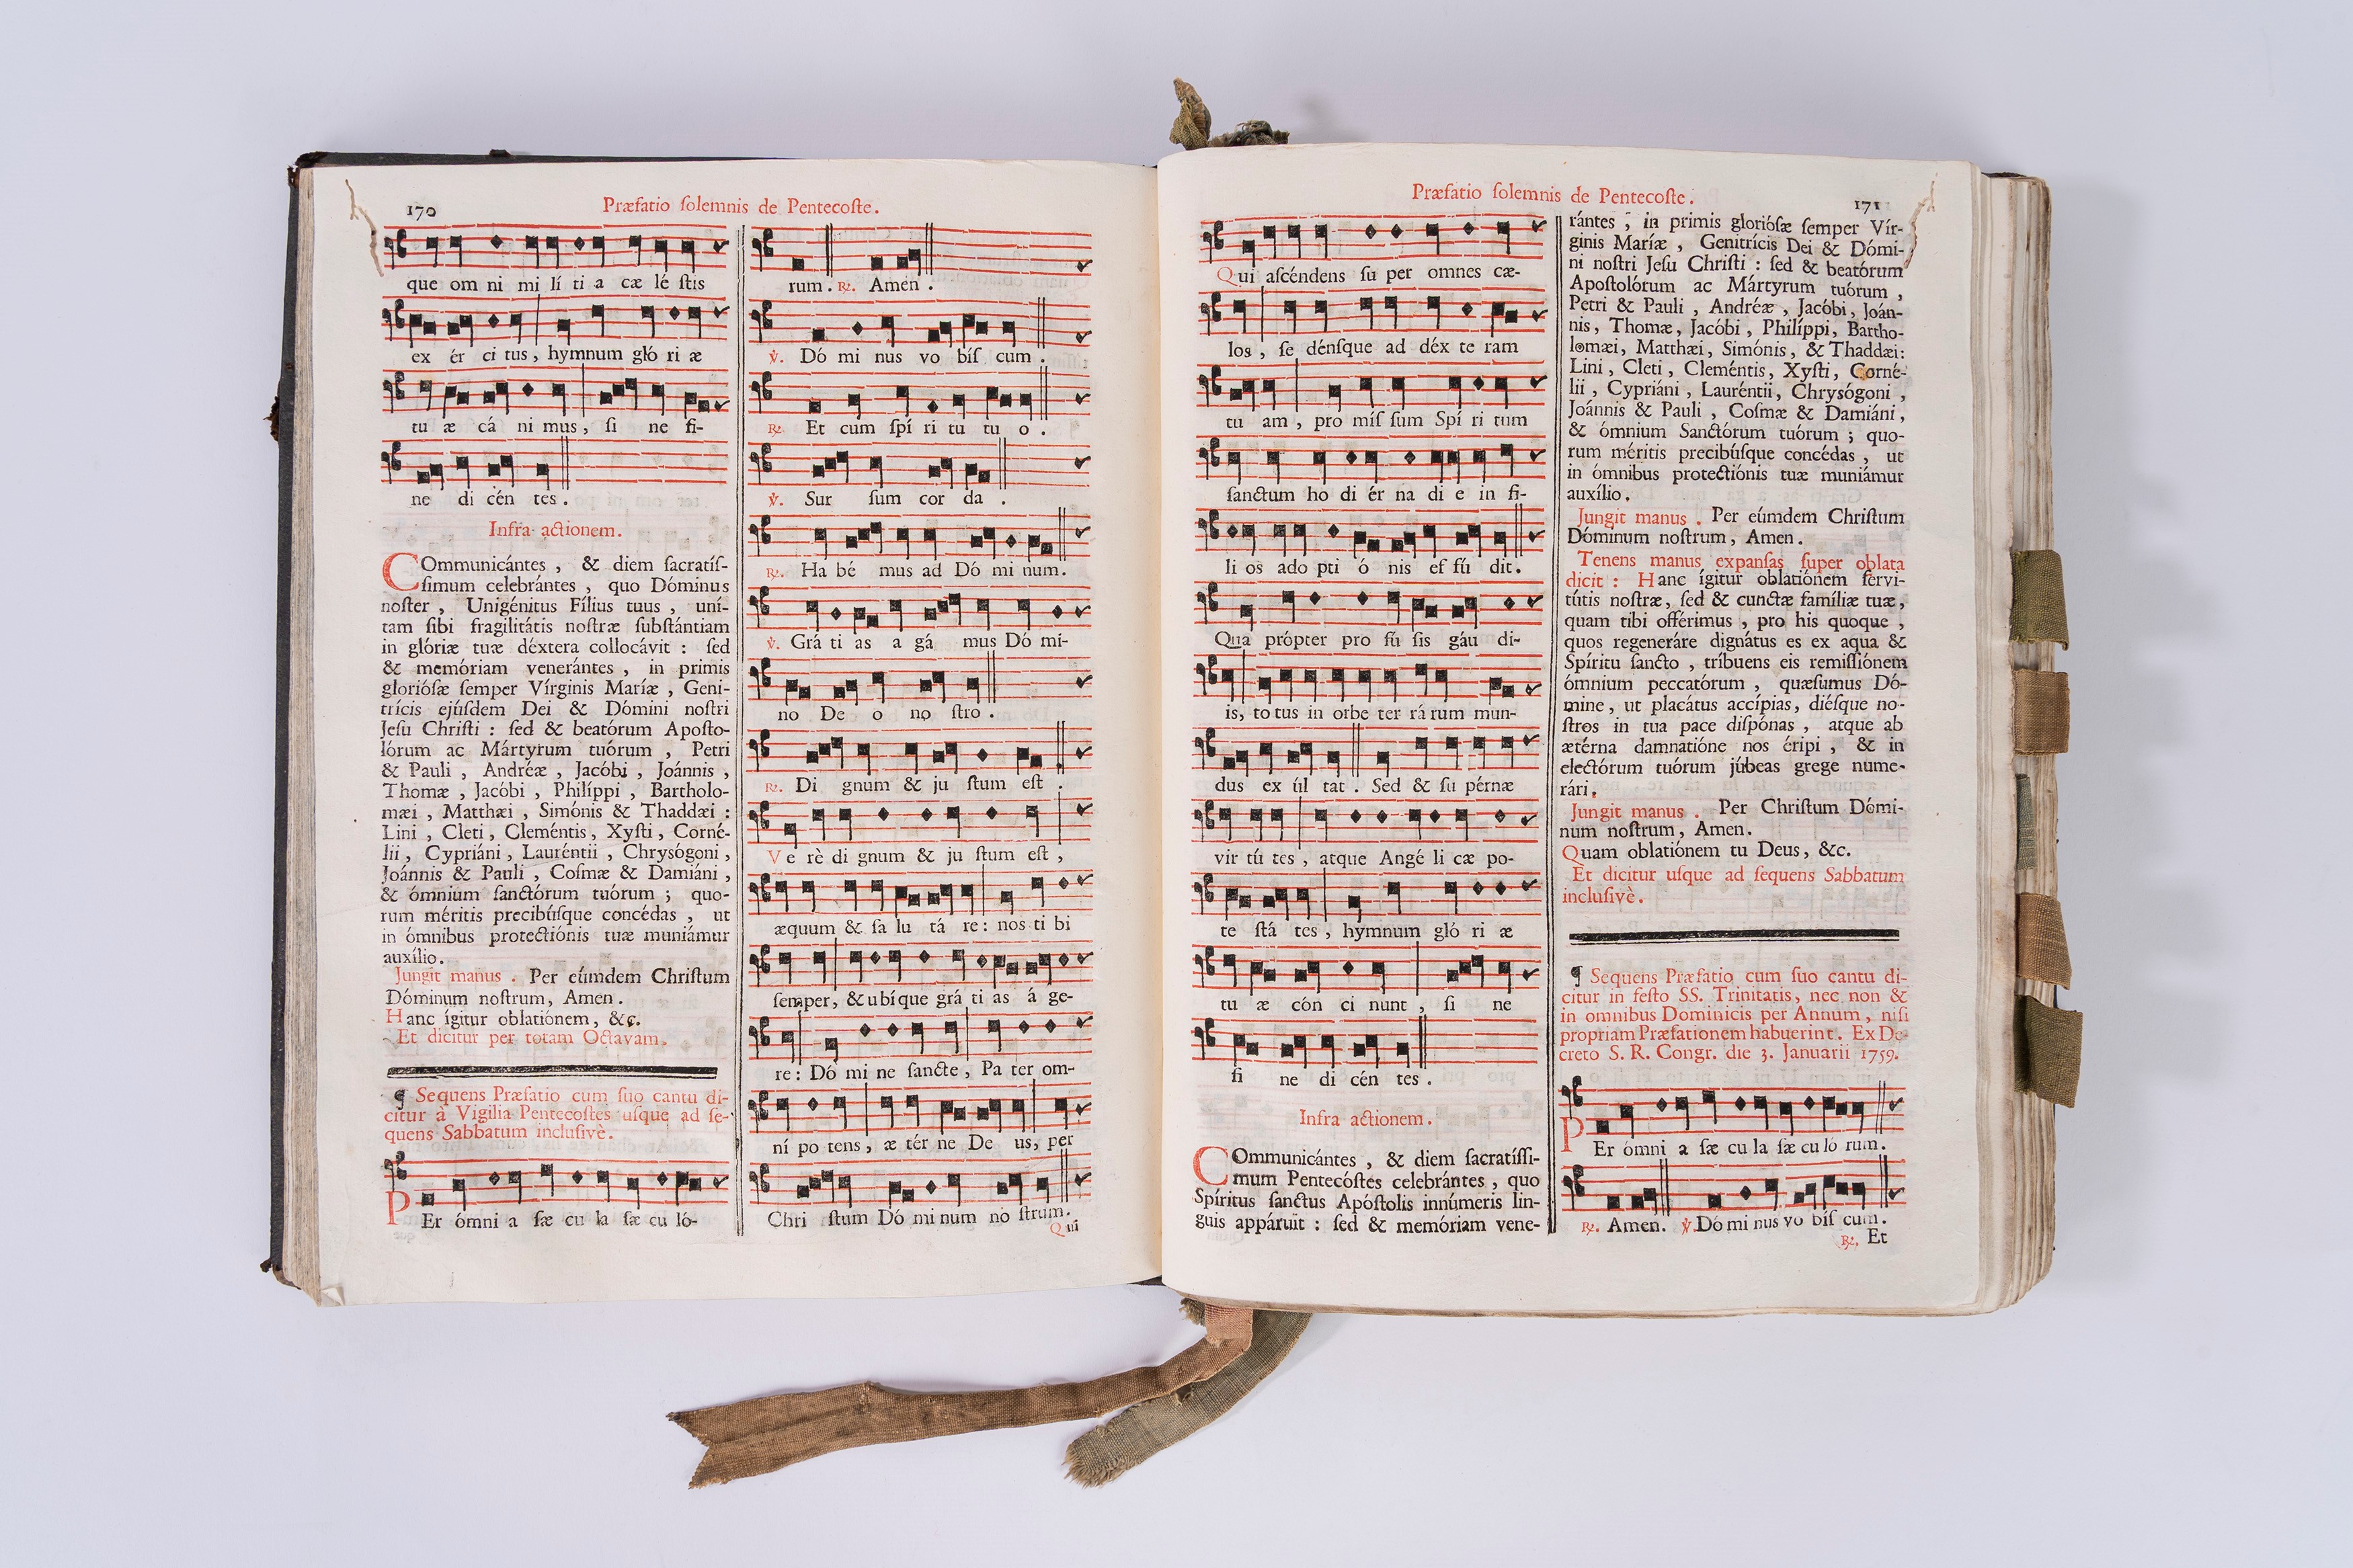 170
Præfatio ſolemnis de Pentecoſte.
que om ni mi lí ti a cæ lé ſtis
ex ér ci tus, hymnum gló ri æ
tu æ cá ni mus, ſi ne fi-
ne di cén tes.
Infra actionem.
COmmunicántes, & diem ſacratíſ-
ſimum celebrántes, quo Dóminus
noſter, Unigénitus Fílius tuus, uní-
tam ſibi fragilitátis noſtræ ſubſtántiam
in glóriæ tuæ déxtera collocávit : ſed
& memóriam venerántes, in primis
glorióſæ ſemper Vírginis Maríæ, Geni-
trícis ejúſdem Dei & Dómini noſtri
Jeſu Chriſti : ſed & beatórum Apoſto-
lórum ac Mártyrum tuórum, Petri
& Pauli, Andréæ, Jacóbi, Joánnis,
Thomæ, Jacóbi, Philíppi, Bartholo-
mæi, Matthæi, Simónis & Thaddæi :
Lini, Cleti, Cleméntis, Xyſti, Corné-
lii, Cypriáni, Lauréntii, Chrysógoni,
Joánnis & Pauli, Coſmæ & Damiáni,
& ómnium ſanctórum tuórum ; quo-
rum méritis precibúſque concédas, ut
in ómnibus protectiónis tuæ muniámur
auxílio.
Jungit manus. Per eúmdem Chriſtum
Dóminum noſtrum, Amen.
Hanc ígitur oblatiónem, &c.
Et dicitur per totam Octavam.
¶ Sequens Præfatio cum ſuo cantu di-
citur à Vigilia Pentecoſtes uſque ad ſe-
quens Sabbatum incluſivè.
PEr ómni a ſæ cu la ſæ cu ló-
rum. ℟. Amen.
℣. Dó mi nus vo biſ cum.
℟. Et cum ſpí ri tu tu o.
℣. Sur ſum cor da.
℟. Ha bé mus ad Dó mi num.
℣. Grá ti as a gá mus Dó mi-
no De o no ſtro.
℟. Di gnum & ju ſtum eſt.
Ve rè di gnum & ju ſtum eſt,
æquum & ſa lu tá re: nos ti bi
ſemper, & ubíque grá ti as á ge-
re: Dó mi ne ſancte, Pa ter om-
ní po tens, æ tér ne De us, per
Chri ſtum Dó mi num no ſtrum.
Qui
Præfatio ſolemnis de Pentecoſte.
171
Qui aſcéndens ſu per omnes cæ-
los, ſe dénſque ad déx te ram
tu am, pro miſ ſum Spí ri tum
ſanctum ho di ér na di e in fi-
li os ado pti ó nis ef fú dit.
Qua própter pro fú ſis gáu di-
is, to tus in orbe ter rá rum mun-
dus ex úl tat. Sed & ſu pérnæ
vir tú tes, atque Angé li cæ po-
te ſtá tes, hymnum gló ri æ
tu æ cón ci nunt, ſi ne
fi ne di cén tes.
Infra actionem.
COmmunicántes, & diem ſacratíſſi-
mum Pentecóſtes celebrántes, quo
Spíritus ſanctus Apóſtolis innúmeris lin-
guis appáruit : ſed & memóriam vene-
rántes, in primis glorióſæ ſemper Vír-
ginis Maríæ, Genitrícis Dei & Dómi-
ni noſtri Jeſu Chriſti : ſed & beatórum
Apoſtolórum ac Mártyrum tuórum,
Petri & Pauli, Andréæ, Jacóbi, Joán-
nis, Thomæ, Jacóbi, Philíppi, Bartho-
lomæi, Matthæi, Simónis, & Thaddæi:
Lini, Cleti, Cleméntis, Xyſti, Corné-
lii, Cypriáni, Lauréntii, Chrysógoni,
Joánnis & Pauli, Coſmæ & Damiáni,
& ómnium Sanctórum tuórum ; quo-
rum méritis precibúſque concédas, ut
in ómnibus protectiónis tuæ muniámur
auxílio.
Jungit manus. Per eúmdem Chriſtum
Dóminum noſtrum, Amen.
Tenens manus expanſas ſuper oblata
dicit : Hanc ígitur oblatiónem ſervi-
tútis noſtræ, ſed & cunctæ famíliæ tuæ,
quam tibi offérimus, pro his quoque,
quos regeneráre dignátus es ex aqua &
Spíritu ſancto, tríbuens eis remiſſiónem
ómnium peccatórum, quæſumus Dó-
mine, ut placátus accípias, diéſque no-
ſtros in tua pace diſpónas, atque ab
ætérna damnatióne nos éripi, & in
electórum tuórum júbeas grege nume-
rári.
Jungit manus. Per Chriſtum Dómi-
num noſtrum, Amen.
Quam oblatiónem tu Deus, &c.
Et dicitur uſque ad ſequens Sabbatum
incluſivè.
¶ Sequens Præfatio cum ſuo cantu di-
citur in feſto SS. Trinitatis, nec non &
in omnibus Dominicis per Annum, niſi
propriam Præfationem habuerint. Ex De-
creto S. R. Congr. die 3. Januarii 1759.
PEr ómni a ſæ cu la ſæ cu ló rum.
℟. Amen. ℣. Dó mi nus vo biſ cum.
℟. Et